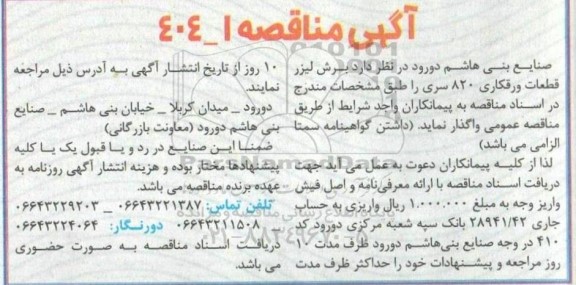 آگهی مناقصه ۱_۴۰۴
صنایع بنی هاشم دورود در نظر دارد برش لیزر
قطعات ورقکاری ۸۲۰ سری را طبق مشخصات مندرج
در اسناد مناقصه به پیمانکاران واجد شرایط از طریق
مناقصه عمومی واگذار نماید. (داشتن گواهینامه سمتا
الزامی می باشد)
لذا از کلیه پیمانکاران دعوت به عمل می آید جهت
دریافت اسناد مناقصه با ارائه معرفی‌نامه و اصل فیش
واریز وجه به مبلغ ۱.۰۰۰.۰۰۰ ریال واریزی به حساب
جاری ۲۸۹۴۱/۴۲ بانک سپه شعبه مرکزی دورود کد
۴۱۰ در وجه صنایع بنی‌هاشم دورود ظرف مدت ۱۰
روز مراجعه و پیشنهادات خود را حداکثر ظرف مدت
۱۰ روز از تاریخ انتشار آگهی به آدرس ذیل مراجعه
نمایند.
دورود _ میدان کربلا _ خیابان بنی هاشم _ صنایع
بنی هاشم دورود (معاونت بازرگانی)
ضمنا این صنایع در رد و یا قبول یک یا کلیه
پیشنهادها مختار بوده و هزینه انتشار آگهی روزنامه به
عهده برنده مناقصه می باشد.
تلفن تماس: ۰۶۶۴۳۲۲۱۳۸۷ _ ۰۶۶۴۳۲۲۹۲۰۳
۰۶۶۴۳۲۱۱۵۰۸ دورنگار: ۰۶۶۴۳۲۲۴۰۶۴
دریافت اسناد مناقصه به صورت حضوری
می باشد.
ParsNamadData